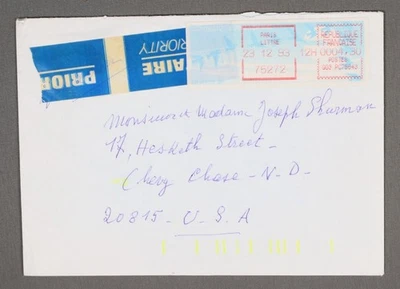 PRIOR
AIRE
PRIORITY
PARIS
LITTRE
23 12 93
75272
REPUBLIQUE
FRANÇAISE
0004,30
POSTES
Monsieur et Madam Joseph Shurman
17, Hesketh Street -
Chevy Chase - N. D -
20815 - U. S. A